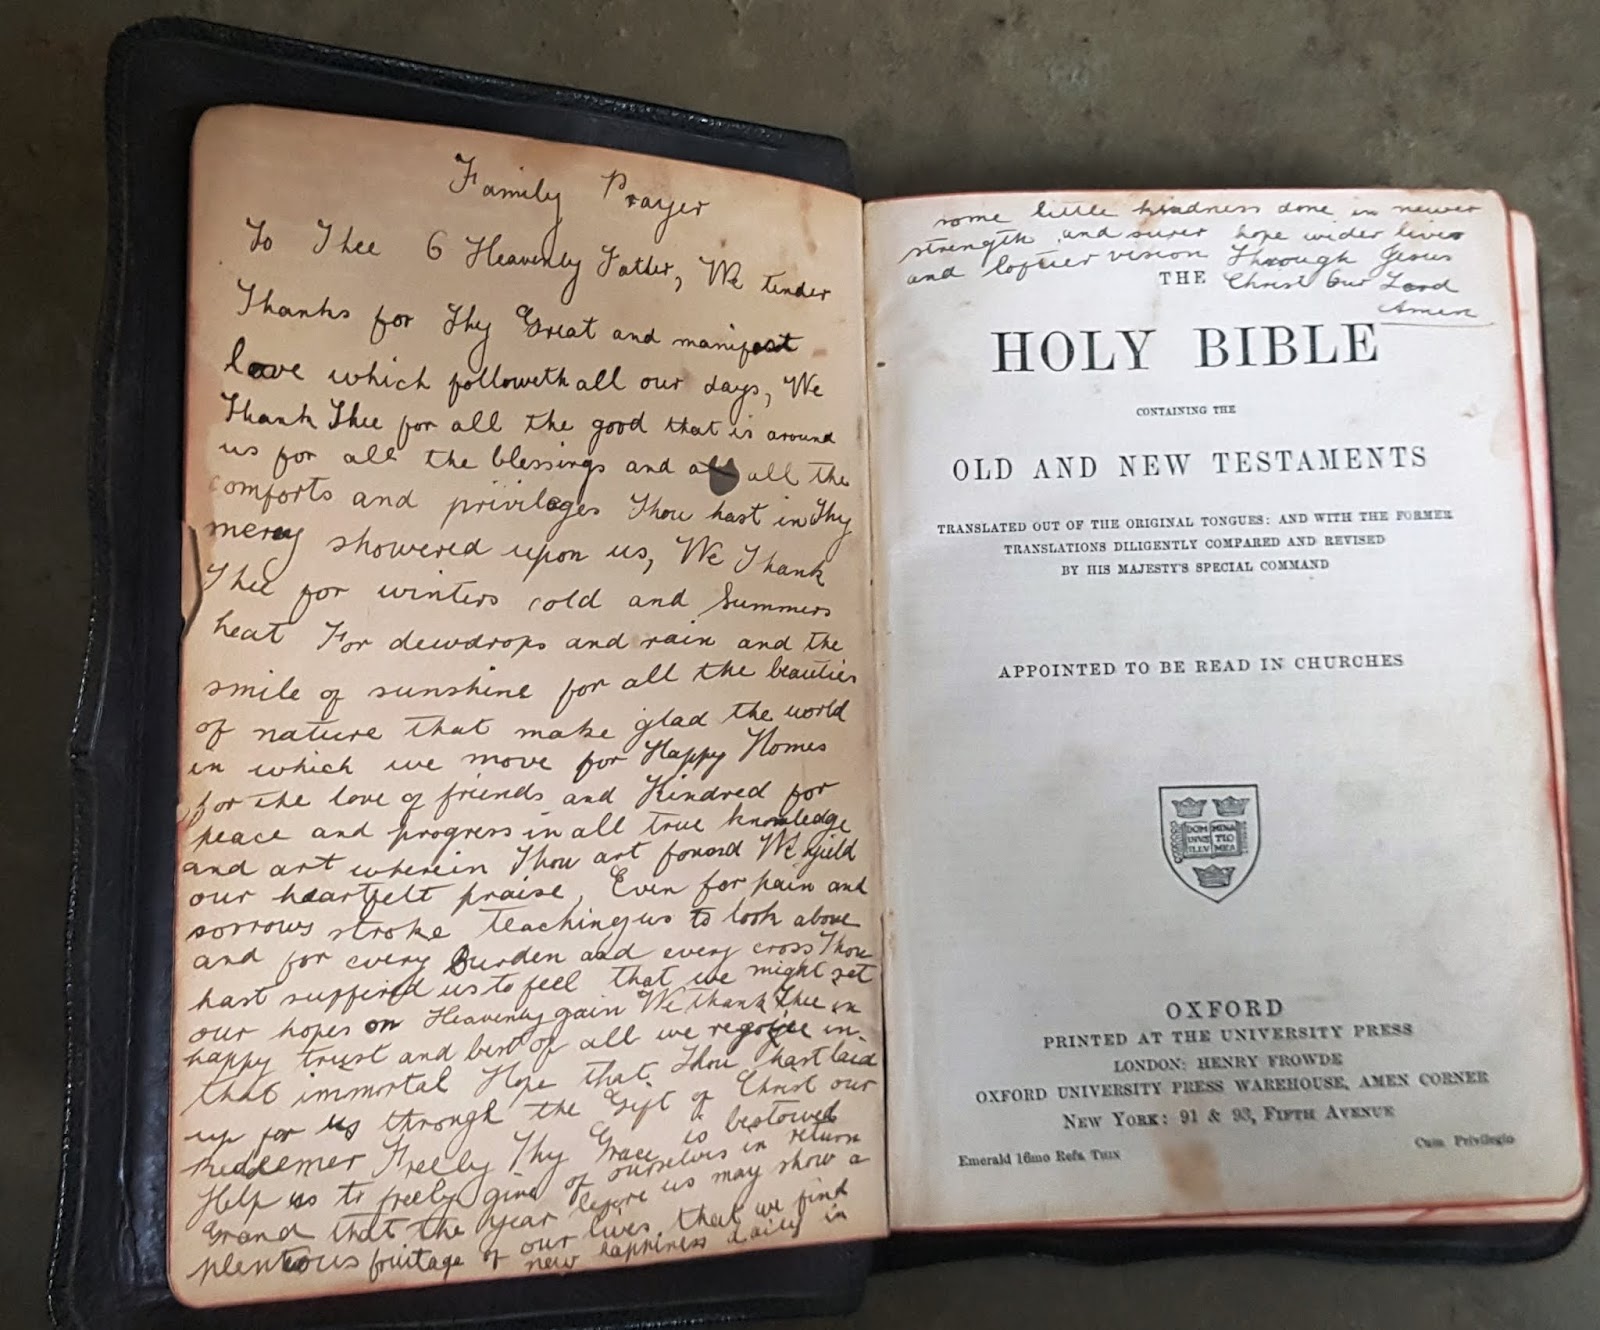 Family Prayer
To Thee O Heavenly Father, We tender
Thanks for Thy Great and manifest
love which followeth all our days, We
Thank Thee for all the good that is around
us for all the blessings and all the
comforts and privileges Thou hast in Thy
mercy showered upon us, We Thank
Thee for winters cold and Summers
heat For dewdrops and rain and the
smile of sunshine for all the beauties
of nature that make glad the world
in which we move for Happy Homes
for the love of friends and Kindred for
peace and progress in all true knowledge
and art wherein Thou art found We yield
our heartfelt praise, Even for pain and
sorrows stroke teaching us to look above
and for every Burden and every cross Thou
hast suffered us to feel that we might set
our hopes on Heavenly gain We thank Thee in
happy trust and best of all we rejoice in
that immortal Hope that Thou hast laid
up for us through the Gift of Christ our
redeemer Freely Thy Grace is bestowed
Help us to freely give of ourselves in return
Grand that the year before us may show a
plentous fruitage of our lives, that we find
new happiness daily in
some little kindness done in newer
strength and surer hope wider lives
and loftier vision Through Jesus
Christ Our Lord
Amen
THE
HOLY BIBLE
CONTAINING THE
OLD AND NEW TESTAMENTS
TRANSLATED OUT OF THE ORIGINAL TONGUES: AND WITH THE FORMER
TRANSLATIONS DILIGENTLY COMPARED AND REVISED
BY HIS MAJESTY'S SPECIAL COMMAND
APPOINTED TO BE READ IN CHURCHES
DOM MINA
INVS TIO
ILLV MEA
OXFORD
PRINTED AT THE UNIVERSITY PRESS
LONDON: HENRY FROWDE
OXFORD UNIVERSITY PRESS WAREHOUSE, AMEN CORNER
NEW YORK: 91 & 93, FIFTH AVENUE
Emerald 16mo Refs. THIN
Cum Privilegio